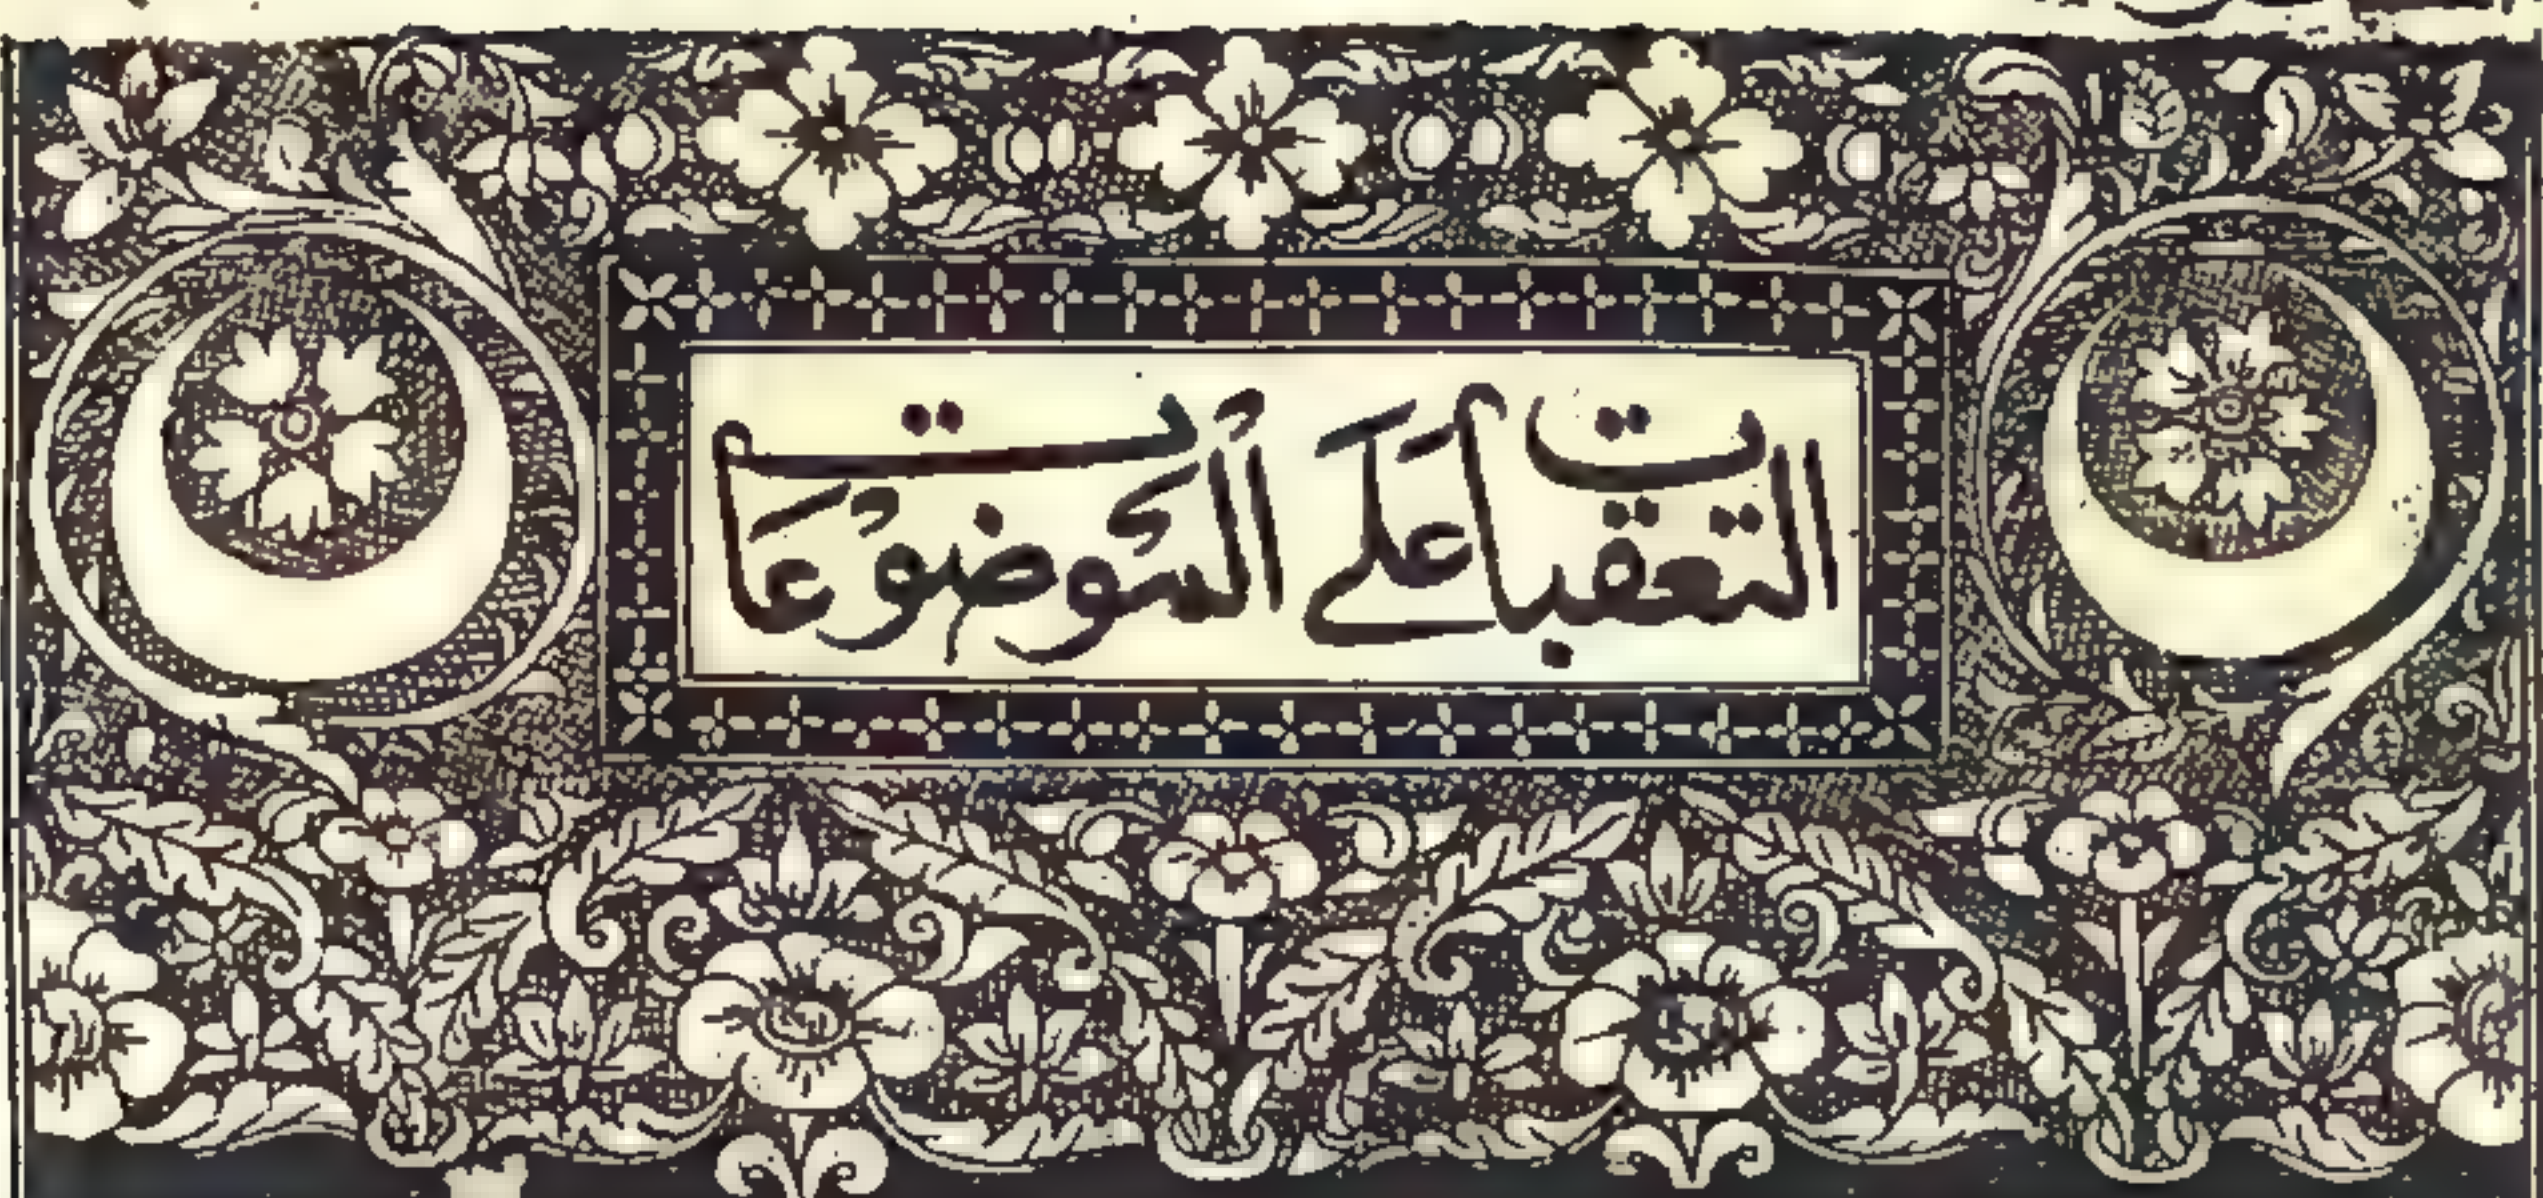 التعقبات على الموضوعات